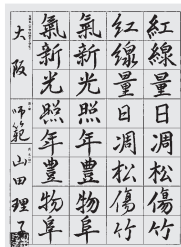 紅線量日凋松傷竹
紅線量日凋松傷竹
氣新光照年豊物阜
氣新光照年豊物阜
大阪 師範 山田理子